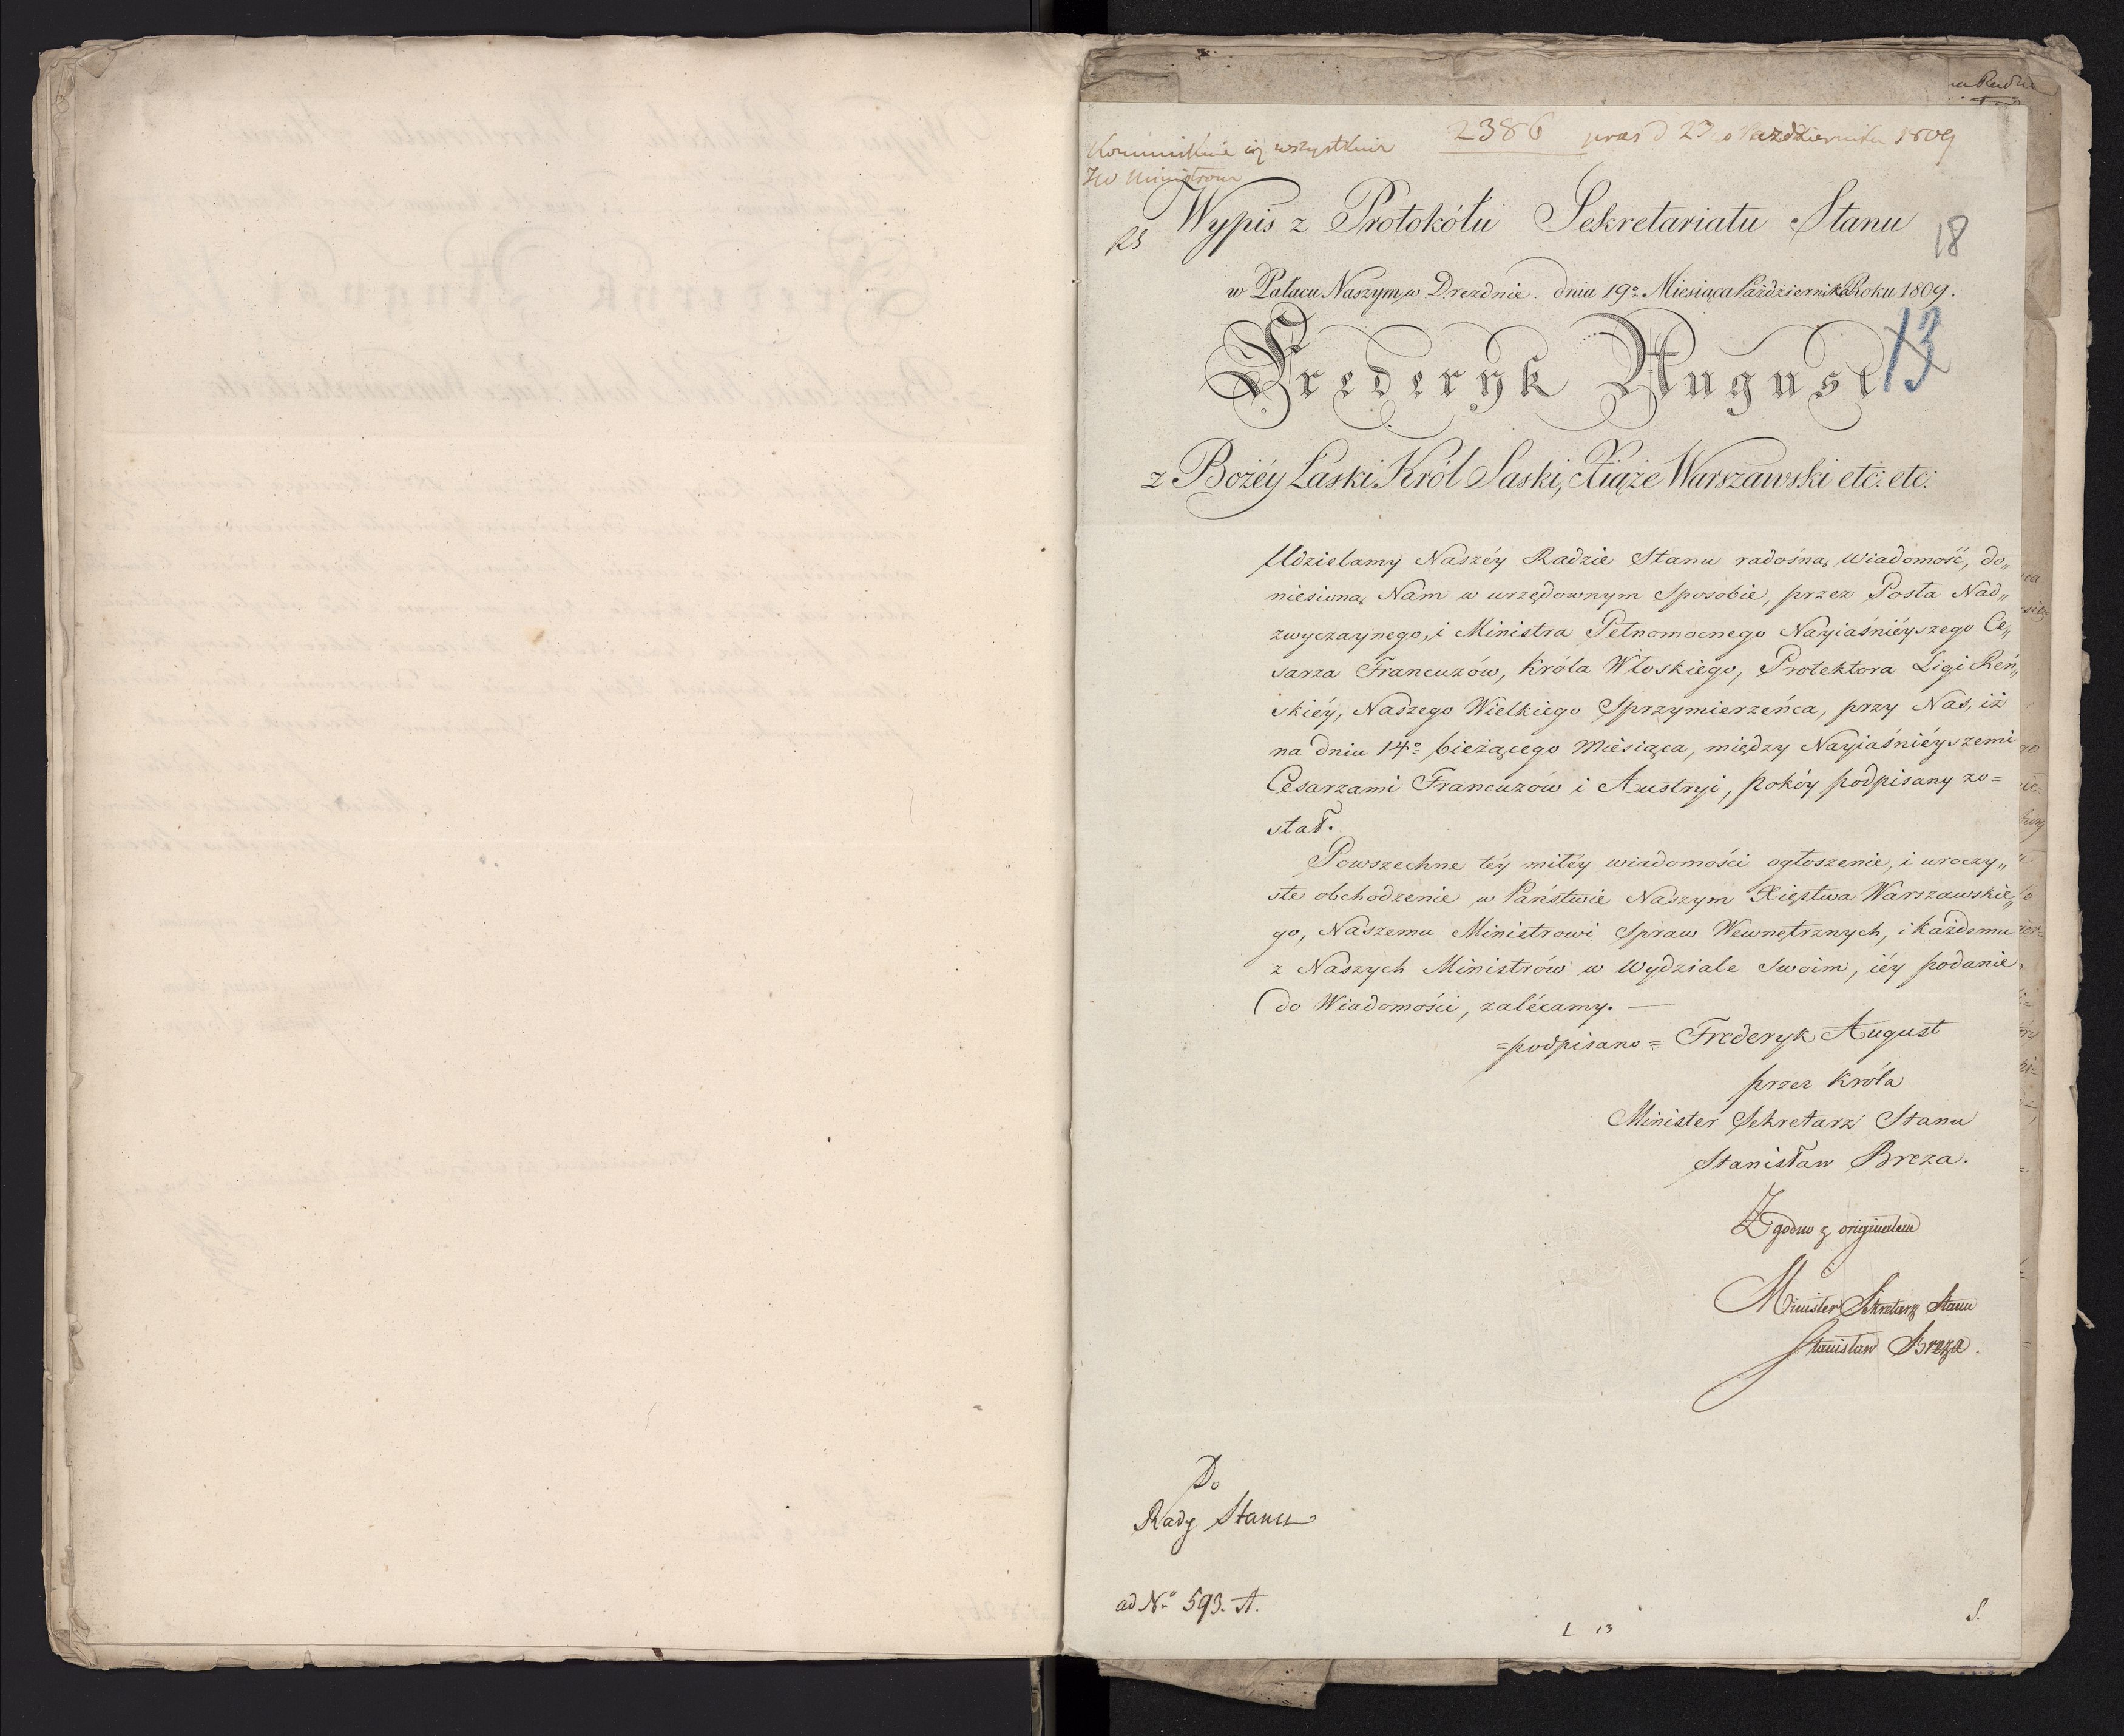 2386 pras d 23 Października 1809
wszystkim
Ministrom
Wypis z Protokółu Sekretariatu Stanu
18
w Pałacu Naszym w Dreznie. dnia 19º Miesiąca Października Roku 1809.
13
Frederyk August
z Bożéy Łaski Król Saski, Xiąże Warszawski etc: etc:
Udzielamy Naszéy Radzie Stanu radośną wiadomość, do„
niesioną Nam w urzędownym Sposobie, przez Posła Nad„
zwyczaynego, i Ministra Pełnomocnego Nayiaśniéyszego Ce„
sarza Francuzów, Króla Włoskiego, Protektora Ligi Reń„
skiéy, Naszego Wielkiego Sprzymierzeńca, przy Nas, iż
na dniu 14º bieżącego Miesiąca, między Nayiaśniéyszemi
Cesarzami Francuzów i Austryi, pokóy podpisany zo=
stał.
Powszechne téy miłéy wiadomości ogłoszenie, i uroczy„
ste obchodzenie w Państwie Naszym Xięstwa Warszawskie„
go, Naszemu Ministrowi Spraw Wewnętrznych, i każdemu
z Naszych Ministrów w Wydziale Swoim, iéy podanie
do Wiadomości, zalécamy. —
=podpisano= Frederyk August
przez Króla
Minister Sekretarz Stanu
Stanisław Breza.
Zgodno z originałem
Minister Sekretarz Stanu
Stanisław Breza.
Do
Rady Stanu
ad Nº 593. A.
L 13
S.